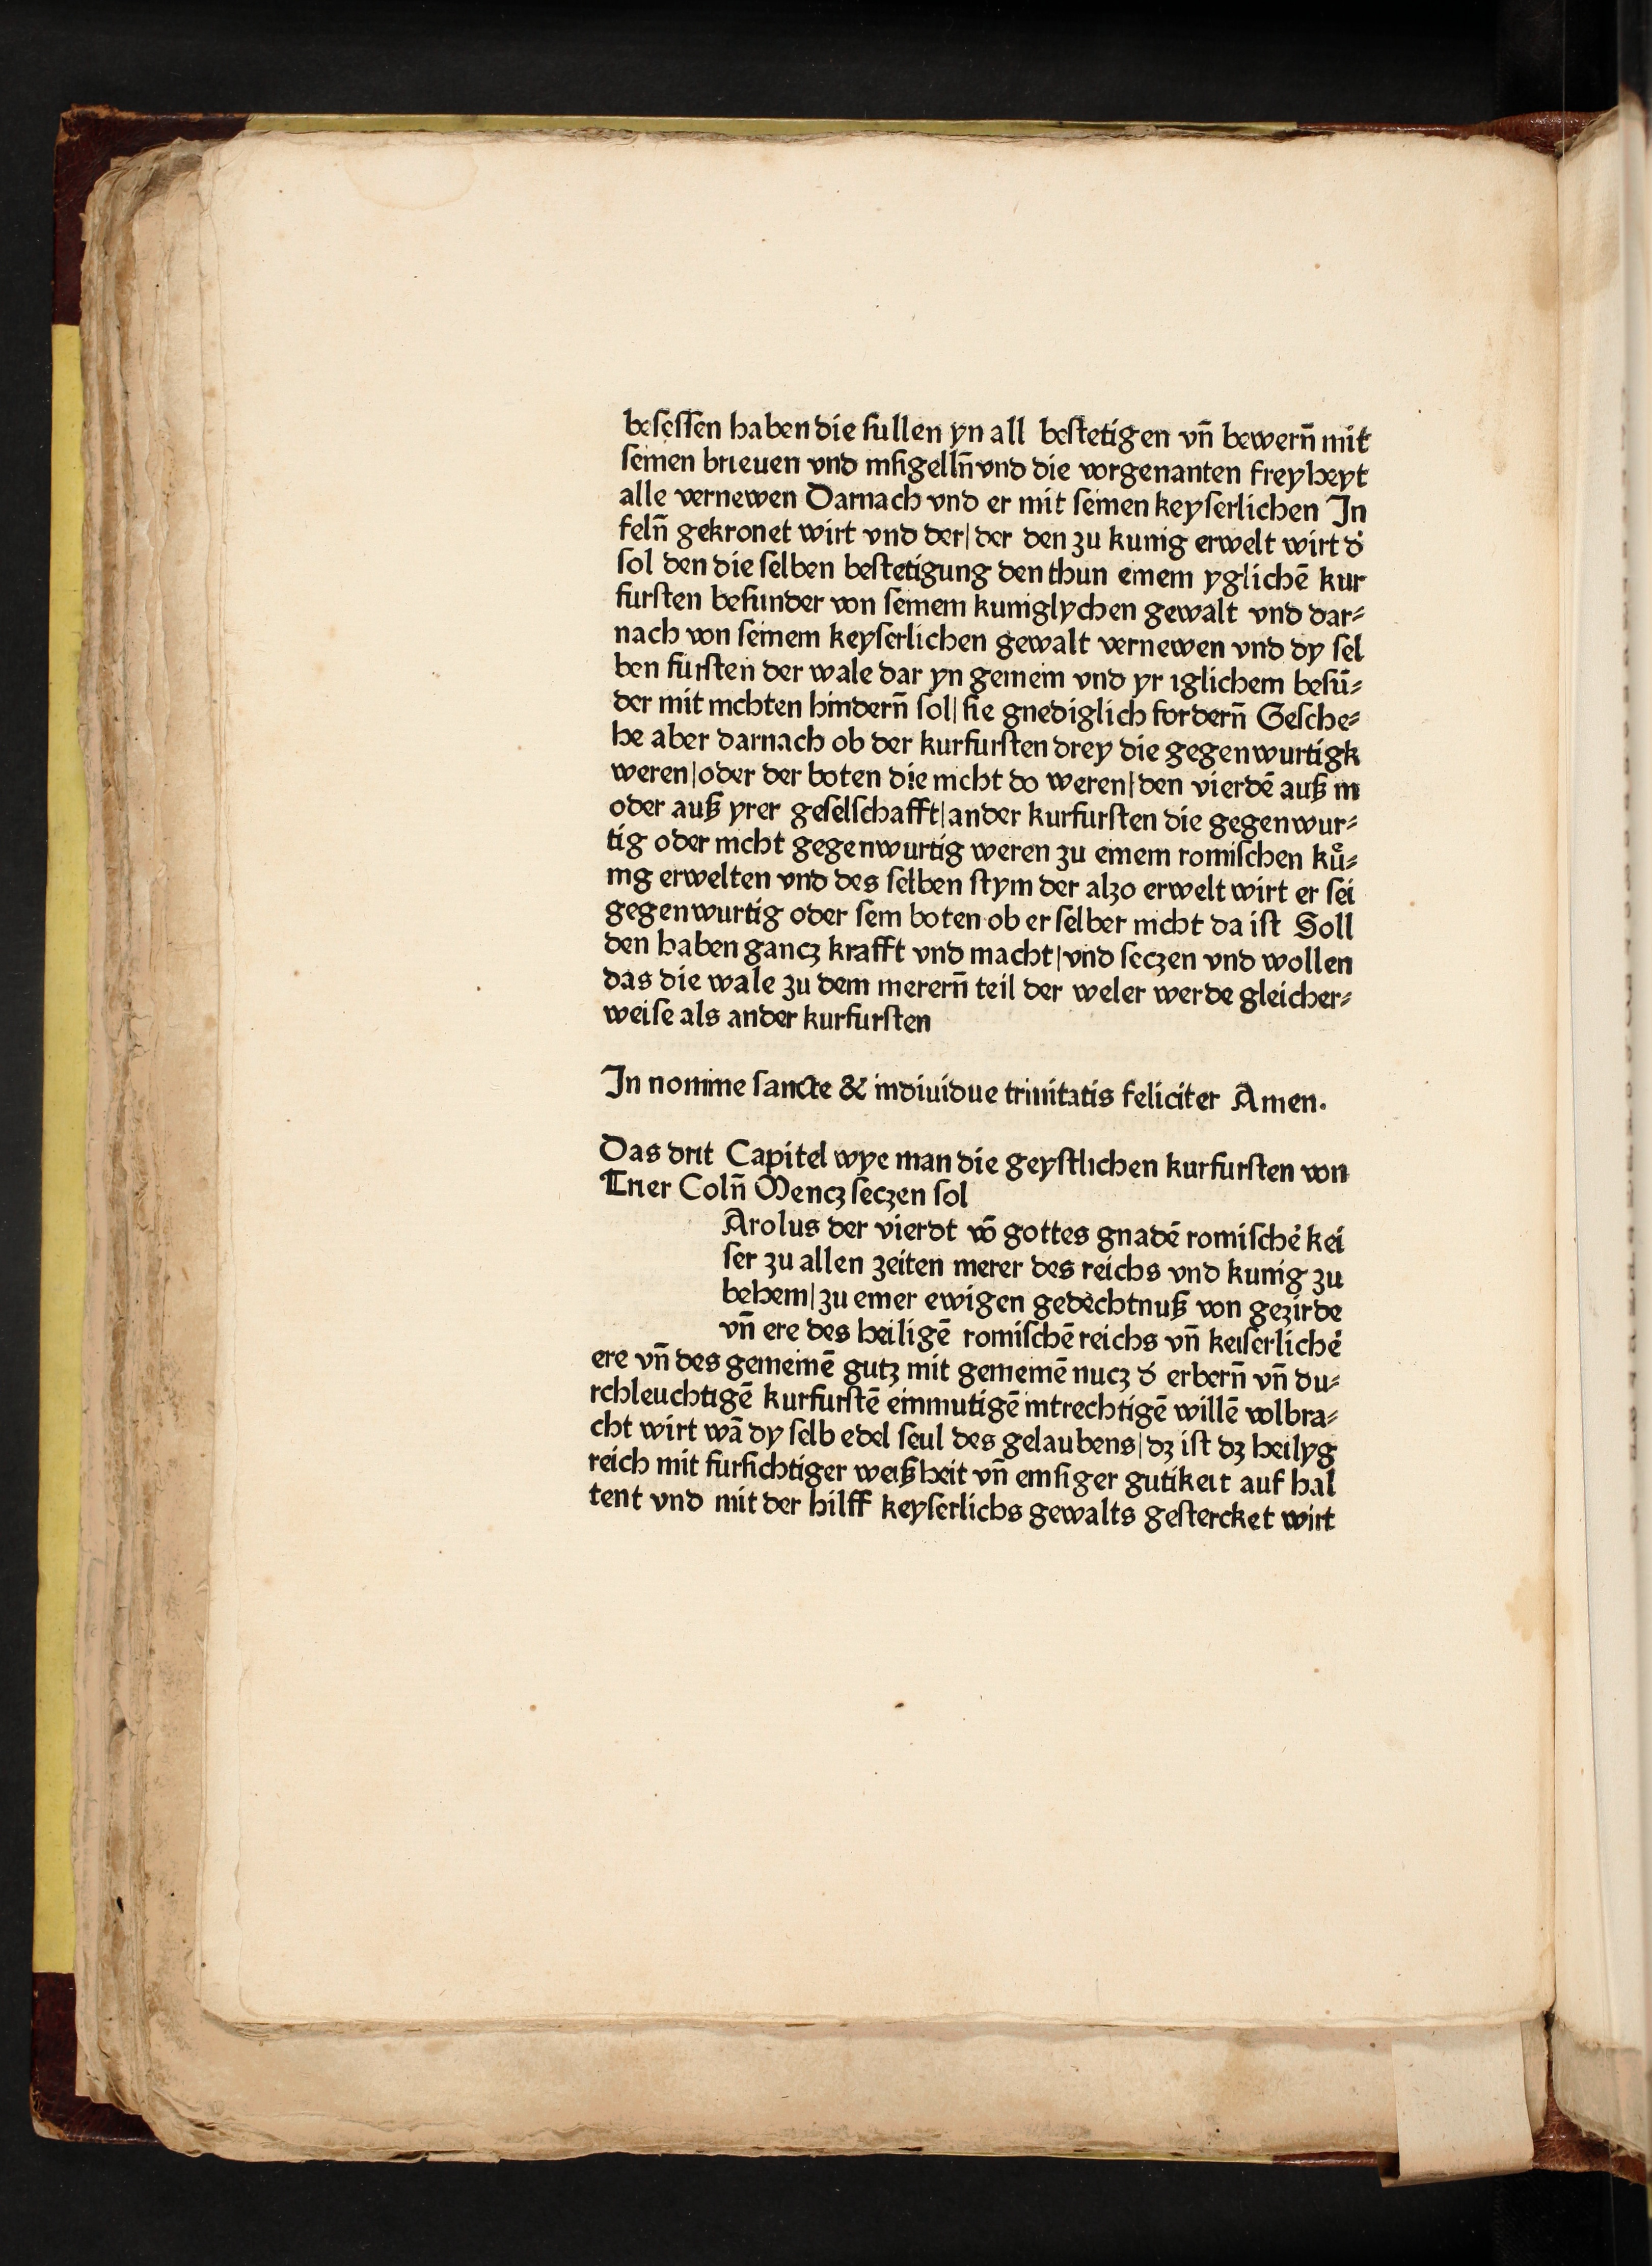 beseſſen haben die sullen yn all beſtetigen vn̄ bewern̄ mit
ſeinen brieuen vnd inſigelln̄ vnd die vorgenanten freyheyt
alle vernewen Darnach vnd er mit ſeinen keyſerlichen In
feln̄ gekronet wirt vnd der| der den zu kunig erwelt wirt d̕
ſol den die ſelben beſtetigung den thun einem yglichē kur
furſten beſunder von ſeinem kuniglychen gewalt vnd dar⸗
nach von ſeinem keyſerlichen gewalt vernewen vnd dy ſel
ben furſten der wale dar yn gemein vnd yr iglichem beſū⸗
der mit nichten hindern̄ ſol| ſie gnediglich fordern̄ Geſche⸗
he aber darnach ob der kurfurſten drey die gegenwurtigk
weren|oder der boten die nicht do weren|den vierdē auß in
oder auß yrer geſelſchafft|ander kurfurſten die gegenwur⸗
tig oder nicht gegenwurtig weren zu einem romiſchen kuͦ⸗
nig erwelten vnd des ſelben ſtym der alzo erwelt wirt er ſei
gegenwurtig oder ſein boten ob er ſelber nicht da iſt Soll
den haben gancz krafft vnd macht|vnd ſeczen vnd wollen
das die wale zu dem merern̄ teil der weler werde gleicher⸗
weiſe als ander kurfurſten
In nomine ſancte & indiuidue trinitatis feliciter Amen.
Das drit Capitel wye man die geyſtlichen kurfurſten von
Trier Coln̄ Mencz ſeczen ſol
Arolus der vierdt vō gottes gnadē romiſche̕ kei
ſer zu allen zeiten merer des reichs vnd kunig zu
behem|zu einer ewigen gedechtnuß von gezirde
vn̄ ere des heiligē romiſchē reichs vn̄ keiſerliche̕
ere vn̄ des gemeinē gutz mit gemeinē nucz d̕ erbern̄ vn̄ du⸗
rchleuchtigē kurfurſtē einmutigē intrechtigē willē volbra⸗
cht wirt wā dy ſelb edel ſeul des gelaubens|dz iſt dz heilyg
reich mit furſichtiger weißheit vn̄ emſiger gutikeit auf hal
tent vnd mit der hilff keyſerlichs gewalts geſtercket wirt